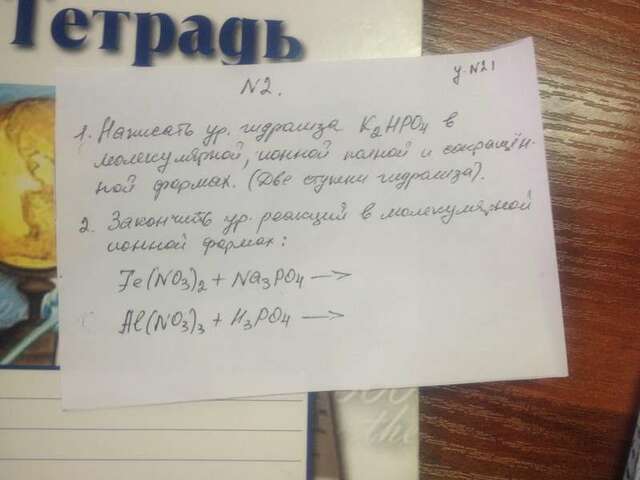 Тетрадь
N2.
у. N21
1. Написать ур. гидролиза K₂HPO₄ в
молекулярной, ионной полной и сокращён-
ной формах. (Две ступени гидролиза).
2. Закончить ур. реакций в молекулярной
ионной формах:
Fe(NO₃)₂ + Na₃PO₄ →
Al(NO₃)₃ + H₃PO₄ →
the